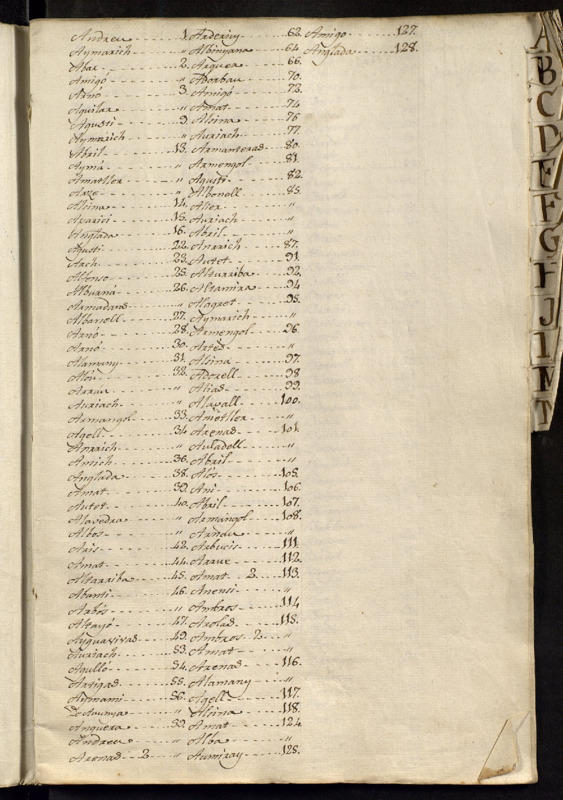 Andreu 1. Ardericy 62. Amigo 127.
Aymarich " Albinyana 64. Anglada 128.
Abar 2. Arquer 66.
Amigó " Adorbau 70.
Arnó 3. Amigó 73.
Aguilar " Amat 74.
Agusti 9. Alsina 76
Aymarich " Auriach 77.
Abril 13. Armanteras 80.
Aymá " Armengol 81.
Amatller " Agusti 82.
" Abonell 85.
Alsina 14. Aller "
Aparici 15. Auriach "
Anglada 16. Abril "
Agusti 22. Anrich 87.
Arch 23. Autet 91.
Alfonso 25. Alturriba 92.
26. Altamira 94
Armadans " Alagret 95.
Albanell 27. Aymarich "
Arnó 28. Armengol 96.
Arnó 30. Artés "
Alamany 31. Alsina 97.
Alòu 32. Adorell 98
Arrau " Alias 99.
Auriach " Alavall 100.
Armangol 33. Ametller "
Agell 34. Arenas 101.
Anrich " Auladell "
Amich 36. Abril "
Anglada 38. Alós 105.
Amat 39. Ani 106.
Autet 40. Abril 107.
Alavedra " Armangol 108.
Albos " Arnau "
Aris 42. Arbucis 111.
Amat 44. Arrue 112.
Altarriba 45. Amat 2. 113.
Abanti 46. "
Arbós " Ambros 114
Altayó 47. Arolas 115.
Ayguavivas 49. Ambros 2. "
Auriach 53. Amat "
Agulló 54. Arenas 116.
Artigas 55. Alamany "
Aymami 56. Agell 117.
" Alsina 118.
Anguera 59. Amat 124.
Andreu " Alba "
Arenas 2. " Aumiray 125.
A
B
C
D
E
F
G
J
M